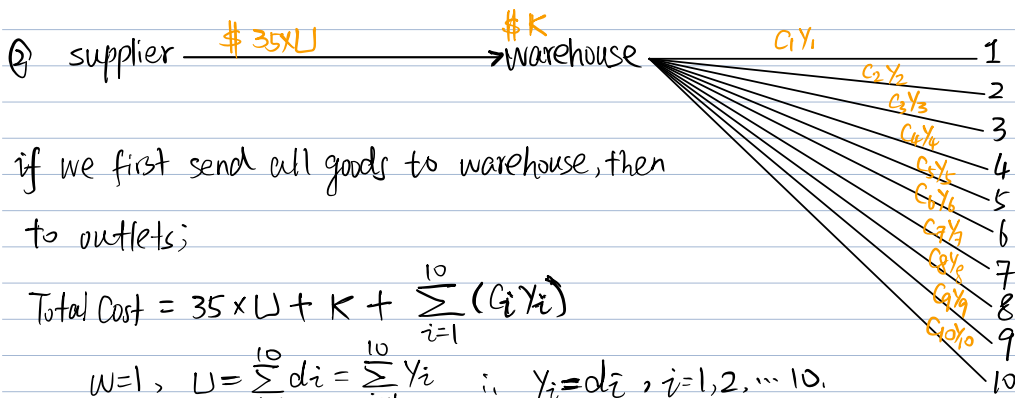 ② supplier $ 35×U $K warehouse C₁Y₁ 1
C₂Y₂ 2
C₃Y₃ 3
C₄Y₄ 4
C₅Y₅ 5
C₆Y₆ 6
C₇Y₇ 7
C₈Y₈ 8
C₉Y₉ 9
C₁₀Y₁₀ 10
if we first send all goods to warehouse, then
to outlets;
Total Cost = 35 × U + K + ∑_{i=1}^{10} (CᵢYᵢ)
w=1, U = ∑^{10} dᵢ = ∑^{10} Yᵢ ; Yᵢ=dᵢ, i=1,2,⋯10.